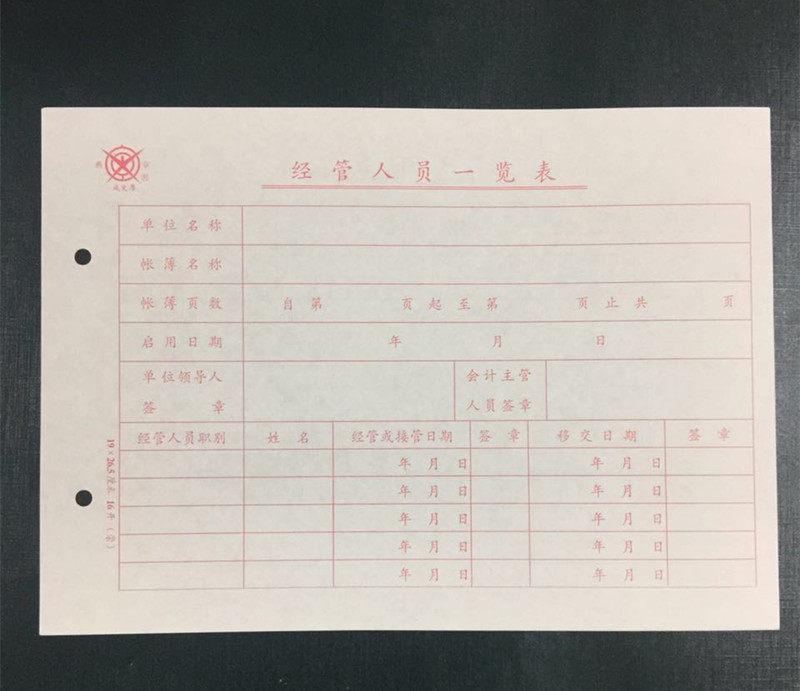 成文厚
经管人员一览表
单位名称
帐簿名称
帐簿页数 自第 页起至第 页止共 页
启用日期 年 月 日
单位领导人签章 会计主管人员签章
经管人员职别 姓名 经管或接管日期 签章 移交日期 签章
年 月 日 年 月 日
年 月 日 年 月 日
年 月 日 年 月 日
年 月 日 年 月 日
年 月 日 年 月 日
19×26.5厘米 16开